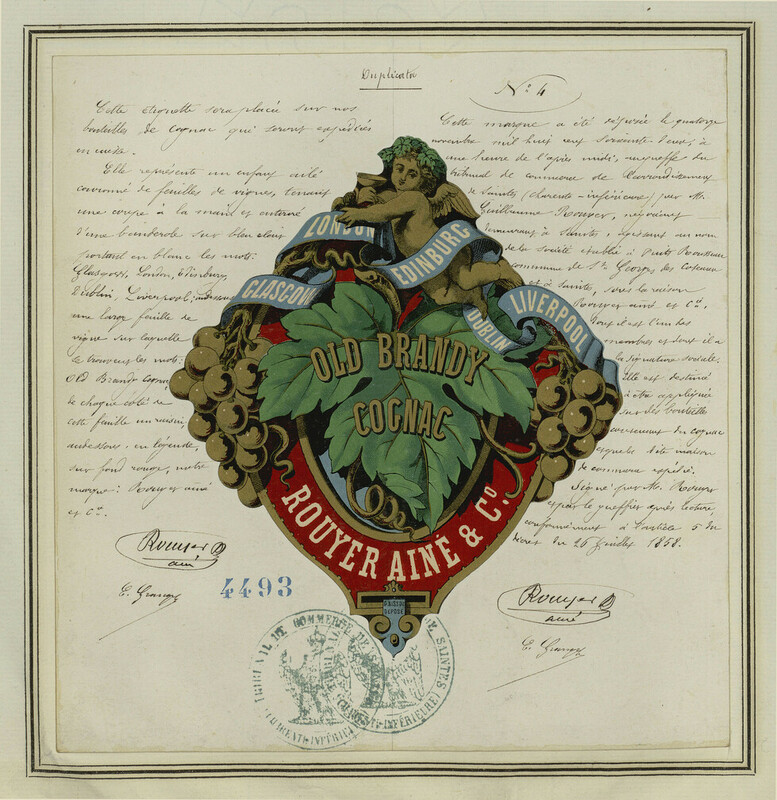 Duplicata
Nº 4
Cette étiquette sera placée sur nos
bouteilles de cognac qui seront expédiées
en caisse.
Elle représente un enfant ailé
couronné de feuilles de vignes, tenant
une coupe à la main et entouré
d'une banderole sur bleu clair
portant en blanc les mots:
Glasgow, London, Edinburg
Dublin, Liverpool;
une large feuille de
vigne sur laquelle
se trouvent les mots:
Old Brandy Cognac
de chaque côté de
cette feuille un raisin
au dessous, en légende,
sur fond rouge, notre
marque: Rouyer ainé
et Cie.
Rouyer
ainé
4493
Cette marque a été déposée le quatorze
novembre mil huit cent soixante deux, à
une heure de l'après midi, au greffe du
tribunal de commerce de l'arrondissement
de Saintes (charente-inférieure) par M.
Guillaume Rouyer, négociant
demeurant à Saintes, agissant au nom
de la Société établie à Puits Rousseau
commune de St Georges des Coteaux
et à Saintes, sous la raison
Rouyer ainé et Cie.
dont il est l'un des
membres et dont il a
la signature sociale.
Elle est destinée
à être appliquée
sur des bouteilles
contenant du cognac
de commerce expédié.
Signé par M. Rouyer
et par le greffier après lecture,
conformément à l'article 5 du
décret du 26 Juillet 1858.
Rouyer
ainé
LONDON
EDINBURG
GLASGOW
DUBLIN
LIVERPOOL
OLD BRANDY
COGNAC
ROUYER AINÉ & Cº.
DÉPOSÉ
TRIBUNAL DE COMMERCE DE SAINTES
(CHARENTE-INFÉRIEURE)